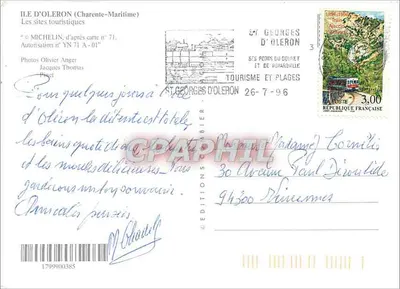 ILE D'OLERON (Charente-Maritime)
Les sites touristiques
© MICHELIN, d'après carte n° 71.
Autorisation n° YN 71 A - 01"
Photos Olivier Angei
Jacques Thomas
ST GEORGES
D'OLERON
SES PORTS DU DOUHET
ET DE BOYARDVILLE
TOURISME ET PLAGES
ST.GEORGES D'OLERON
26-7-96
POSTE
3,00
REPUBLIQUE FRANÇAISE
Pour quelques jours à l'île
d'Oleron la détente est totale,
les bains quotidiens
et les moules délicieuses. Nous
garderons un bon souvenir.
Amicales pensées
CPAPHIL
© EDITIONS
Monsieur Madame Cornillis
30 Avenue Paul Déroulède
94300 Vincennes
1799900385